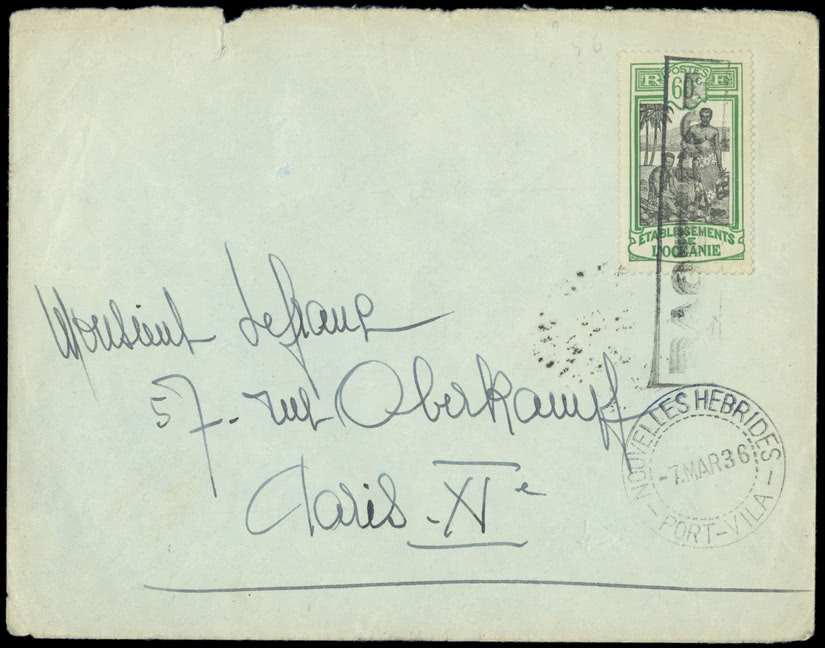 POSTES
R F
60c
ÉTABLISSEMENTS
DE
L'OCÉANIE
Monsieur Lefranc
57. rue Oberkampf
Paris - XIe
NOUVELLES HEBRIDES
-7.MAR36
- PORT-VILA -